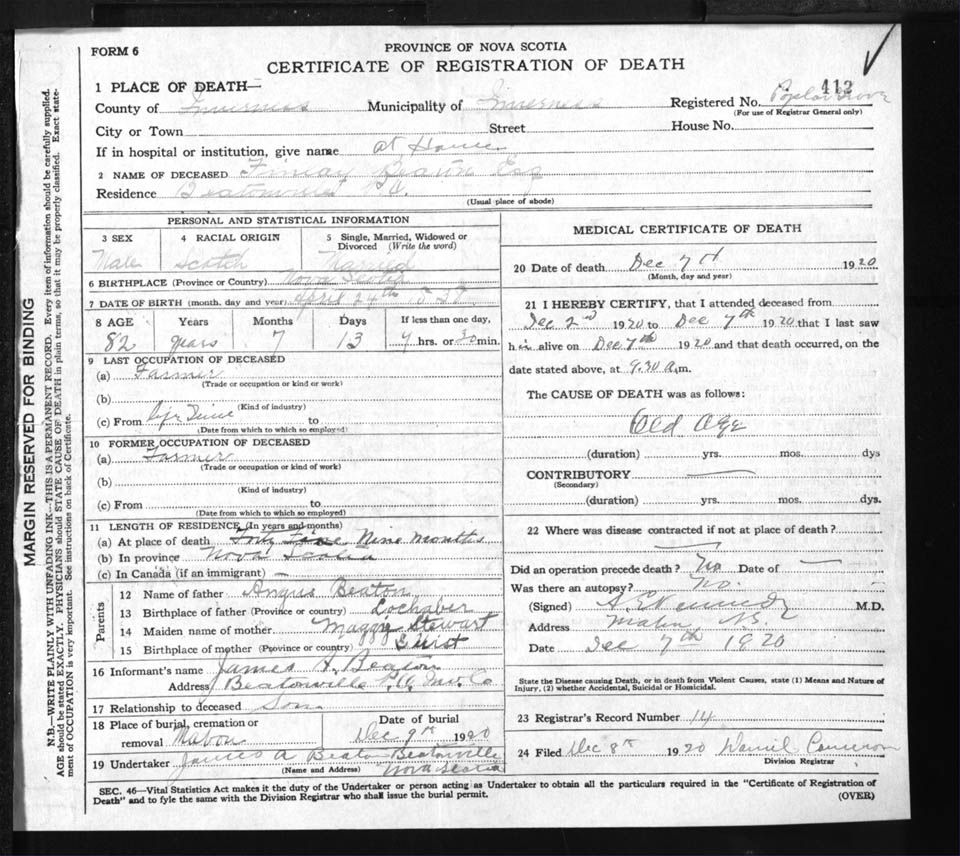 FORM 6
PROVINCE OF NOVA SCOTIA
CERTIFICATE OF REGISTRATION OF DEATH
1 PLACE OF DEATH—
County of Inverness Municipality of Inverness Registered No. 412 Poplar Grove
(For use of Registrar General only)
City or Town Street House No.
If in hospital or institution, give name at Home
2 NAME OF DECEASED Finlay Beaton Esq
Residence Beatonville P.O.
(Usual place of abode)
PERSONAL AND STATISTICAL INFORMATION
3 SEX 4 RACIAL ORIGIN 5 Single, Married, Widowed or Divorced (Write the word)
Male Scotch Married
6 BIRTHPLACE (Province or Country) Nova Scotia
7 DATE OF BIRTH (month, day and year) April 24th
8 AGE Years Months Days If less than one day,
82 years 7 13 hrs. or 30 min.
9 LAST OCCUPATION OF DECEASED
(a) Farmer
(Trade or occupation or kind of work)
(b)
(Kind of industry)
(c) From Life Time to
(Date from which to which so employed)
10 FORMER OCCUPATION OF DECEASED
(a) Farmer
(Trade or occupation or kind of work)
(b)
(Kind of industry)
(c) From to
(Date from which to which so employed)
11 LENGTH OF RESIDENCE (In years and months)
(a) At place of death Nine months
(b) In province Nova Scotia
(c) In Canada (if an immigrant) —
Parents
12 Name of father Angus Beaton
13 Birthplace of father (Province or country) Lochaber
14 Maiden name of mother Maggy Stewart
15 Birthplace of mother (Province or country) Guist
16 Informant's name James A. Beaton
Address Beatonville P.O. Inv. Co
17 Relationship to deceased Son
18 Place of burial, cremation or removal Mabou Date of burial Dec 9th 1920
19 Undertaker James A Beaton Beatonville
(Name and Address) Nova Scotia
MEDICAL CERTIFICATE OF DEATH
20 Date of death Dec 7th 1920
(Month, day and year)
21 I HEREBY CERTIFY, that I attended deceased from
Dec 2nd 1920 to Dec 7th 1920 that I last saw
him alive on Dec 7th 1920 and that death occurred, on the
date stated above, at 9.30 a.m.
The CAUSE OF DEATH was as follows:
Old Age
(duration) yrs. mos. dys
CONTRIBUTORY —
(Secondary)
(duration) yrs. mos. dys.
22 Where was disease contracted if not at place of death?
—
Did an operation precede death? No Date of —
Was there an autopsy? No.
(Signed) A. E. Kennedy M.D.
Address Mabou N.S.
Date Dec 7th 1920
State the Disease causing Death, or in death from Violent Causes, state (1) Means and Nature of
Injury, (2) whether Accidental, Suicidal or Homicidal.
23 Registrar's Record Number 14
24 Filed Dec 8th 1920 Daniel Cameron
Division Registrar
SEC. 46—Vital Statistics Act makes it the duty of the Undertaker or person acting as Undertaker to obtain all the particulars required in the "Certificate of Registration of
Death" and to fyle the same with the Division Registrar who shall issue the burial permit. (OVER)
MARGIN RESERVED FOR BINDING
N.B.—WRITE PLAINLY WITH UNFADING INK—THIS IS A PERMANENT RECORD. Every item of information should be carefully supplied.
AGE should be stated EXACTLY. PHYSICIANS should STATE CAUSE OF DEATH in plain terms, so that it may be properly classified. Exact state-
ment of OCCUPATION is very important. See instructions on back of Certificate.